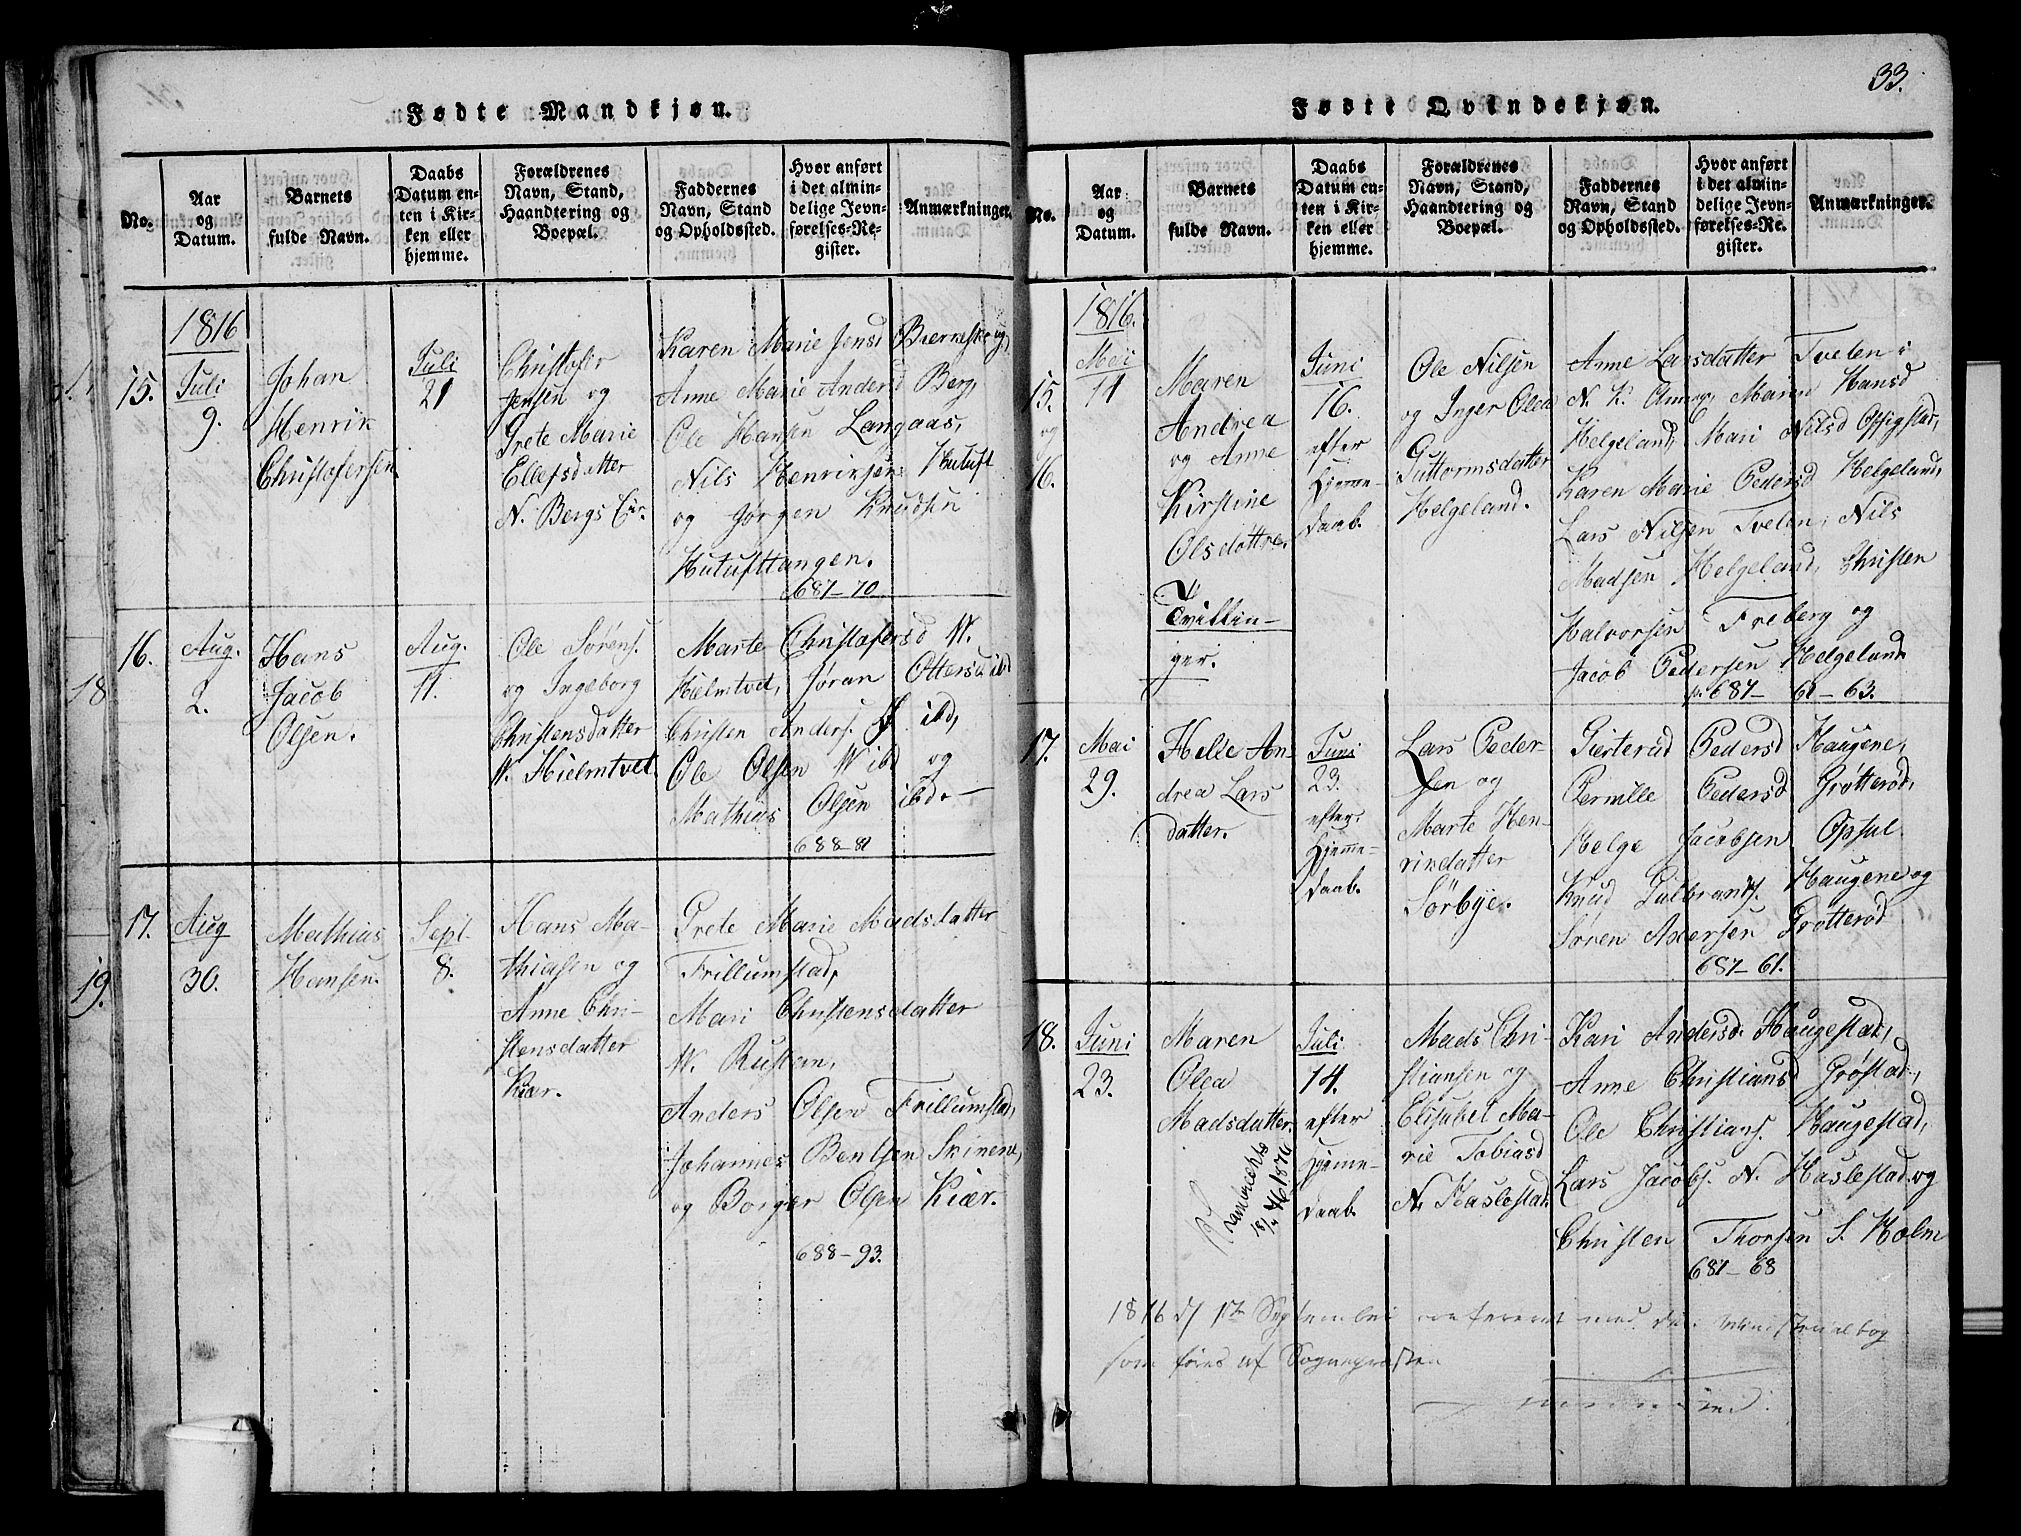 33.
Fødte Mandkjøn.
No.
Aar
og
Datum.
Barnets
fulde Navn.
Daabs
Datum en-
ten i Kir-
ken eller
hjemme.
Forældrenes
Navn, Stand,
Haandtering og
Boepæl.
Faddernes
Navn, Stand
og Opholdssted.
Hvor anført
i det almin-
delige Jevn-
førelses-Re-
gister.
Anmærkninger.
15.
1816
Juli
9.
Johan
Henrik
Christofersen
Juli
21
Christofer
Jensen og
Grete Marie
Ellefsdatter
N. Bergs Eir.
Karen Marie Jensd Bierkeskog,
Anne Marie Andersd Berg,
Ole Hansen Langaas,
Nils Henriksen Hutuft
og Jørgen Knudsen
Hutufttangen.
687-70
16.
Aug.
2.
Hans
Jacob
Olsen.
Aug.
11.
Ole Sørens.
og Ingeborg
Christensdatter
W. Hielmtvet
Marte Christofersd W.
Hielmtvet, Jøran Ottersd ibd
Christen Anders. Ø. ibd,
Ole Olsen W ibd og
Mathias Olsen ibd. —
688-81
17.
Aug
30.
Mathias
Hansen.
Sept.
8.
Hans Ma-
thiasen og
Anne Chri-
stensdatter
Kiær.
Grete Marie Madsdatter
Frillumstad,
Mari Christensdatter
W. Rustan,
Anders Olsen Frillumstad,
Johannes Bentsen Skinene,
og Borger Olsen Kiær.
688-93.
18
19.
Fødte Qvindekjøn.
No.
Aar
og
Datum.
Barnets
fulde Navn.
Daabs
Datum en-
ten i Kir-
ken eller
hjemme.
Forældrenes
Navn, Stand,
Haandtering og
Boepæl.
Faddernes
Navn, Stand
og Opholdssted.
Hvor anført
i det almin-
delige Jevn-
førelses-Re-
gister.
Anmærkninger.
15.
og
16.
1816.
Mai
11
Maren
Andrea
og Anne
Kirstine
Olsdøttre.
Tvillin-
ger.
Juni
16.
efter
Hjemme-
daab.
Ole Nilsen
og Inger Olea
Guttormsdatter
Helgeland.
Anne Larsdatter Tveten i
N. K. Maren Hansd
Helgeland, Mari Nilsd Opsigstad,
Karen Marie Pedersd Helgeland,
Lars Nilsen Tveten, Nils
Madsen Helgeland, Christen
Halvorsen Freberg og
Jacob Pedersen Helgeland
p. 687- 61-63.
17.
Mai
29.
Helle An-
drea Lars
datter.
Juni
23.
efter
Hjemme-
daab.
Lars Peder-
sen og
Marte Hen-
rikdatter
Sørbye.
Gierterud Pedersd Haugene,
Pernille Pedersd Grøtterød,
Helge Jacobsen Opsul
Knud Gulbrands. Haugene og
Søren Andersen Grøtterød
687-61.
18.
Juni
23.
Maren
Olea
Madsdatter.
18/11 1876
Juli
14.
efter
Hjemme-
daab.
Mads Chri-
stiansen og
Elisabet Ma-
rie Tobiasd
N. Haslestad.
Kari Andersd. Haugestad,
Anne Christiansd Grøstad,
Ole Christians. Haugestad,
Lars Jacobs. N. Haslestad og
Christen Thorsen S. Holm
687-68
1816 d/ 1te September confereret med den Ministerialbog
som føres af Sognepræsten